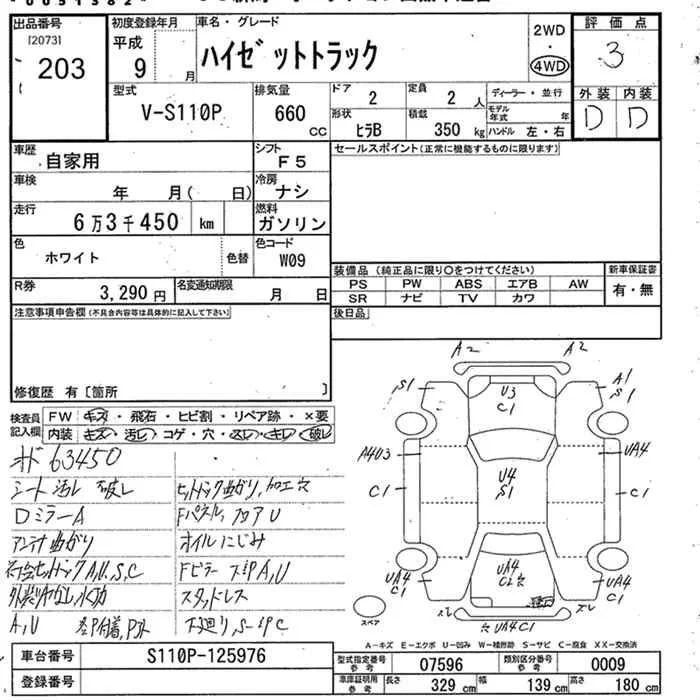 出品番号
[2073]
203
初度登録年月
平成
9 月
車名・グレード
ハイゼットトラック
2WD
・
4WD
評価点
3
外装 内装
D D
型式
V-S110P
排気量
660 CC
ドア
2
定員
2 人
ディーラー・並行
形状
ヒラB
積載
350 kg
モデル年式 年
ハンドル 左・右
車歴
自家用
シフト
F5
車検
年 月( 日)
冷房
ナシ
走行
6万3千450 km
燃料
ガソリン
色
ホワイト
色替
色コード
W09
R券
3,290 円
名変通知期限
月 日
セールスポイント(正常に機能するものに限ります)
装備品 (純正品に限り○をつけてください)
PS PW ABS エアB AW
SR ナビ TV カワ
新車保証書
有・無
後日品
注意事項申告欄(不具合内容等は具体的に記入して下さい)
修復歴 有〔箇所 〕
検査員
記入欄
FW キズ・飛石・ヒビ割・リペア跡・×要
内装 キズ・汚レ・コゲ・穴・
63450
シート汚レ 破レ
DミラーA
アンテナ曲がり
A,U,S,C
A,U
オイルにじみ
Fピラー
A,U
スタッドレス
下廻り,S
C
A2 A2
S1 U3 C1 A1 S1
UA4
C1 U4 S1 C1
UA4 C1
UA4
UA4 C1
ズレ ズレ
穴 UA4C1
スペア
A-キズ E-エクボ U-凹み W-補修跡 S-サビ C-腐食 XX-交換済
車台番号 S110P-125976
登録番号
型式指定番号 参考 07596
類別区分番号 参考 0009
車庫証明用 参考 長さ 329 cm 幅 139 cm 高さ 180 cm